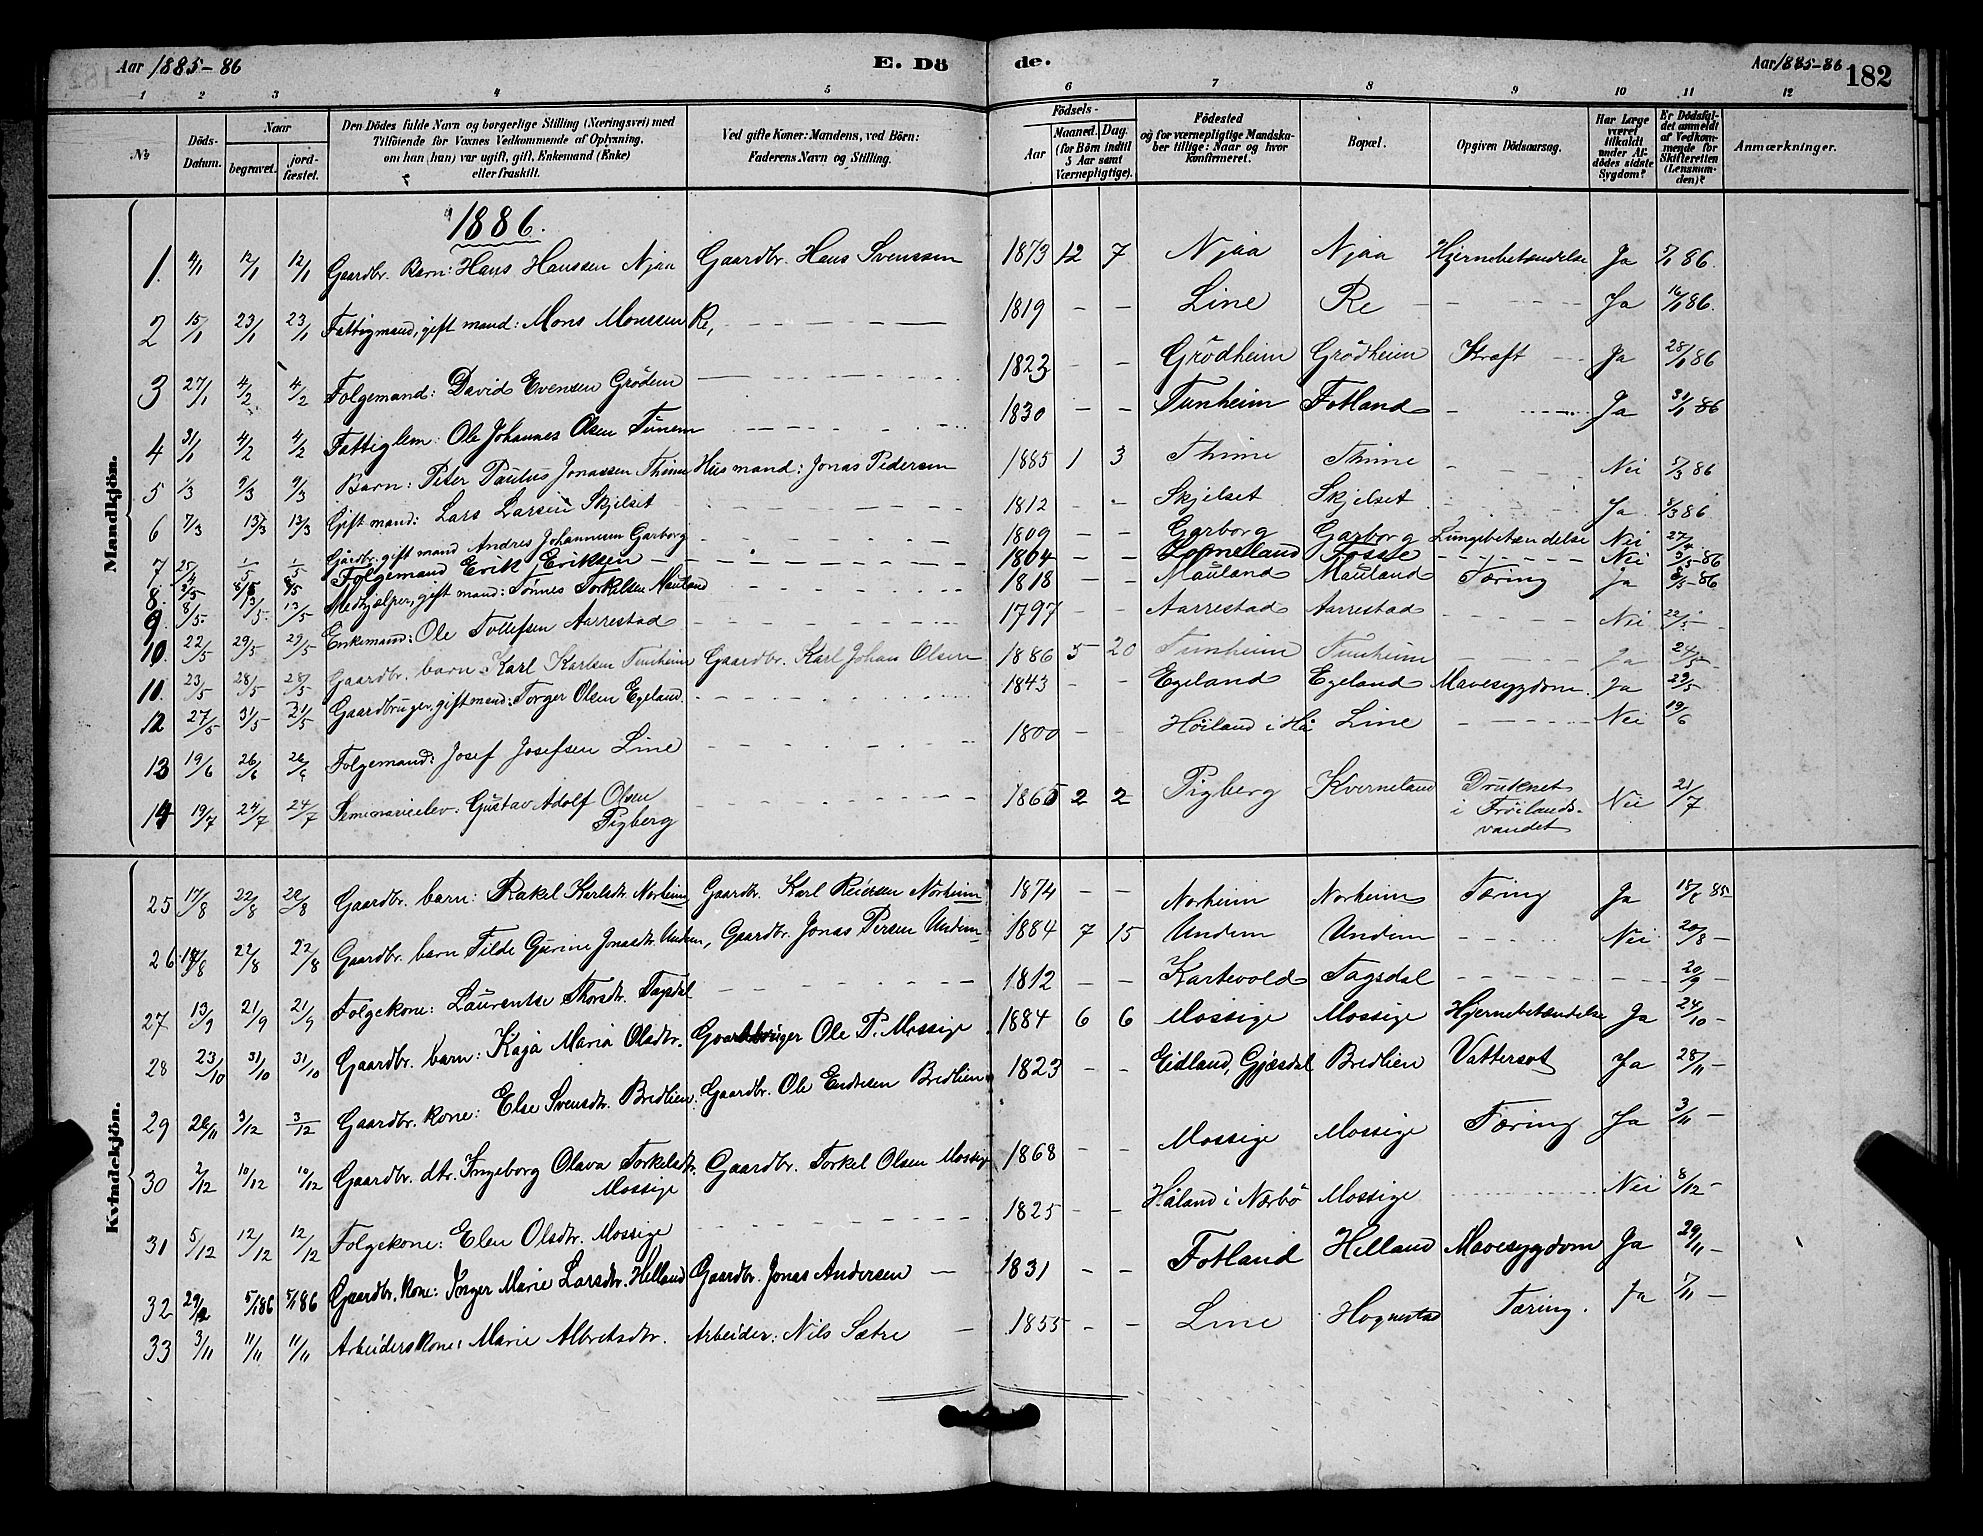 Aar 1885-86 E. Dö de. Aar 1885-86 182
1 2 3 4 5 6 7 8 9 10 11 12
No
Döds-Datum.
Naar
begravet.
jord-fæstet.
Den Dödes fulde Navn og borgerlige Stilling (Næringsvei) med
Tilföiende for Voxnes Vedkommende af Oplysning,
om han (hun) var ugift, gift, Enkemand (Enke)
eller fraskilt.
Ved gifte Koner: Mandens, ved Börn:
Faderens Navn og Stilling.
Födsels-
Aar
Maaned. Dag.
(for Börn indtil
5 Aar samt
Værnepligtige).
Födested
og for værnepligtige Mandska-
ber tillige: Naar og hvor
Konfirmeret.
Bopæl.
Opgiven Dödsaarsag.
Har Læge
været
tilkaldt
under Af-
dödes sidste
Sygdom?
Er Dödsfal-
det anmeldt
af Vedkom-
mende for
Skifteretten
(Lensman-
den)?
Anmærkninger.
Mandkjön.
1886.
1. 4/1 12/1 12/1 Gaardbr. Barn: Hans Hanssen Njaa Gaardbr. Hans Svenssen 1873 12 7 Njaa Njaa Hjernebetændelse Ja 5/1 86.
2 15/1 23/1 23/1 Fattigmand, gift mand: Mons Monssen Re, 1819 - - Line Re - Ja 16/1 86.
3 27/1 4/2 4/2 Folgemand: David Evensen Grödem - 1823 - - Grödheim Grödheim Kraft Ja 28/1 86
4 31/1 4/2 4/2 Fattiglem: Ole Johannes Olsen Tunem - 1830 - - Tunheim Fotland - Ja 31/1 86
5 1/3 9/3 9/3 Barn: Peter Paulus Jonassen Thime Husmand: Jonas Pedersen 1885 1 3 Thime Thime - Nei 5/3 86
6 7/3 13/3 13/3 Gift mand: Lars Larsen Skjelset - 1812 - Skjelset Skjelset - Ja 8/3 86
7 25/4 1/5 1/5 Gårdbr. gift mand Andres Johannessen Garborg - 1809 - - Garborg Garborg Lungebetændelse Nei 27/4
8. 3/5 8/5 8/5 Folgemand Erik Eriksen - 1804 - - Fosse - Nei 5-86
9 8/5 13/5 13/5 Medhjælper, gift mand: Tönnes Torkelsen Mauland - 1818 - - Mauland Mauland Tæring Ja 8/5-86
10 22/5 29/5 29/5 Enkemand: Ole Tollefsen Aarrestad - 1797 - - Aarrestad Aarrestad - Nei 22/5 -
11. 23/5 28/5 28/5 Gaardbr. barn: Karl Karlsen Tunheim Gaardbr. Karl Johan Olsen 1886 5 20 Tunheim Tunheim - Ja 24/5 -
12 27/5 31/5 31/5 Gaardbruger, gift mand: Torger Olsen Egeland. - 1843 - - Egeland Egeland Mavesygdom. Ja 29/5
13 19/6 26/6 26/6 Folgemand: Josef Josefsen Line - 1800 - Höiland i Hå Line - Nei 19/6
14 19/7 24/7 24/7 Seminarieelev: Gustav Adolf Olsen - 1865 2 2 Pigberg Kverneland Druknet Nei 21/7
Pigberg i Fröilands-
vandet
Kvindekjön.
25 17/8 22/8 22/8 Gaardbr. barn: Rakel Karlsdtr. Norheim Gaardbr. Karl Reiersen Norheim 1874 - - Norheim Norheim Tæring Ja 18/8 85
26 18/8 22/8 22/8 Gaardbr. barn Tilde Gurine Jonasdtr. Undem, Gaardbr. Jonas Persen Undem 1884 7 15 Undem Undem - Nei. 20/8 -
27 13/9 21/9 21/9 Folgekone: Laurentse Thorsdtr. Tagsdal - 1812 - - Kartevold Tagsdal - 20/9 -
28 23/10 31/10 31/10 Gaardbr. barn: Kaja Maria Olsdtr. Gaardbruger Ole P. Mossige 1884 6 6 Mossige Mossige Hjernebetændelse Ja 24/10 -
29 26/11 3/12 3/12 Gaardbr. kone: Else Svensdtr. Bredlien: Gaardbr. Ole Endresen Bredlien 1823 - - Eidland, Gjæsdal Bredlien Vattersot Ja 28/11 -
30 2/12 10/12 10/12 Gaardbr. dtr. Ingeborg Olava Torkelsdtr. Gaardbr. Torkel Olsen Mossige 1868 - - Mossige Mossige Tæring Ja 3/11 -
Mossige
31 5/12 12/12 12/12 Folgekone: Elen Olsdtr. Mossige - 1825 - - Håland i Nærbö Mossige - Nei 8/12 -
32 29/12 5/1 86 5/1 86 Gaardbr. kone: Inger Marie Larsdtr. Helland Gaardbr. Jonas Andersen - 1831 - - Fotland Helland Mavesygdom Ja 29/11 -
33 3/11 11/11 11/11 Arbeiderskone: Marie Albretsdtr. Arbeider: Nils Sætre - 1855 - - Line Hognestad Tæring. Ja 7/11 -